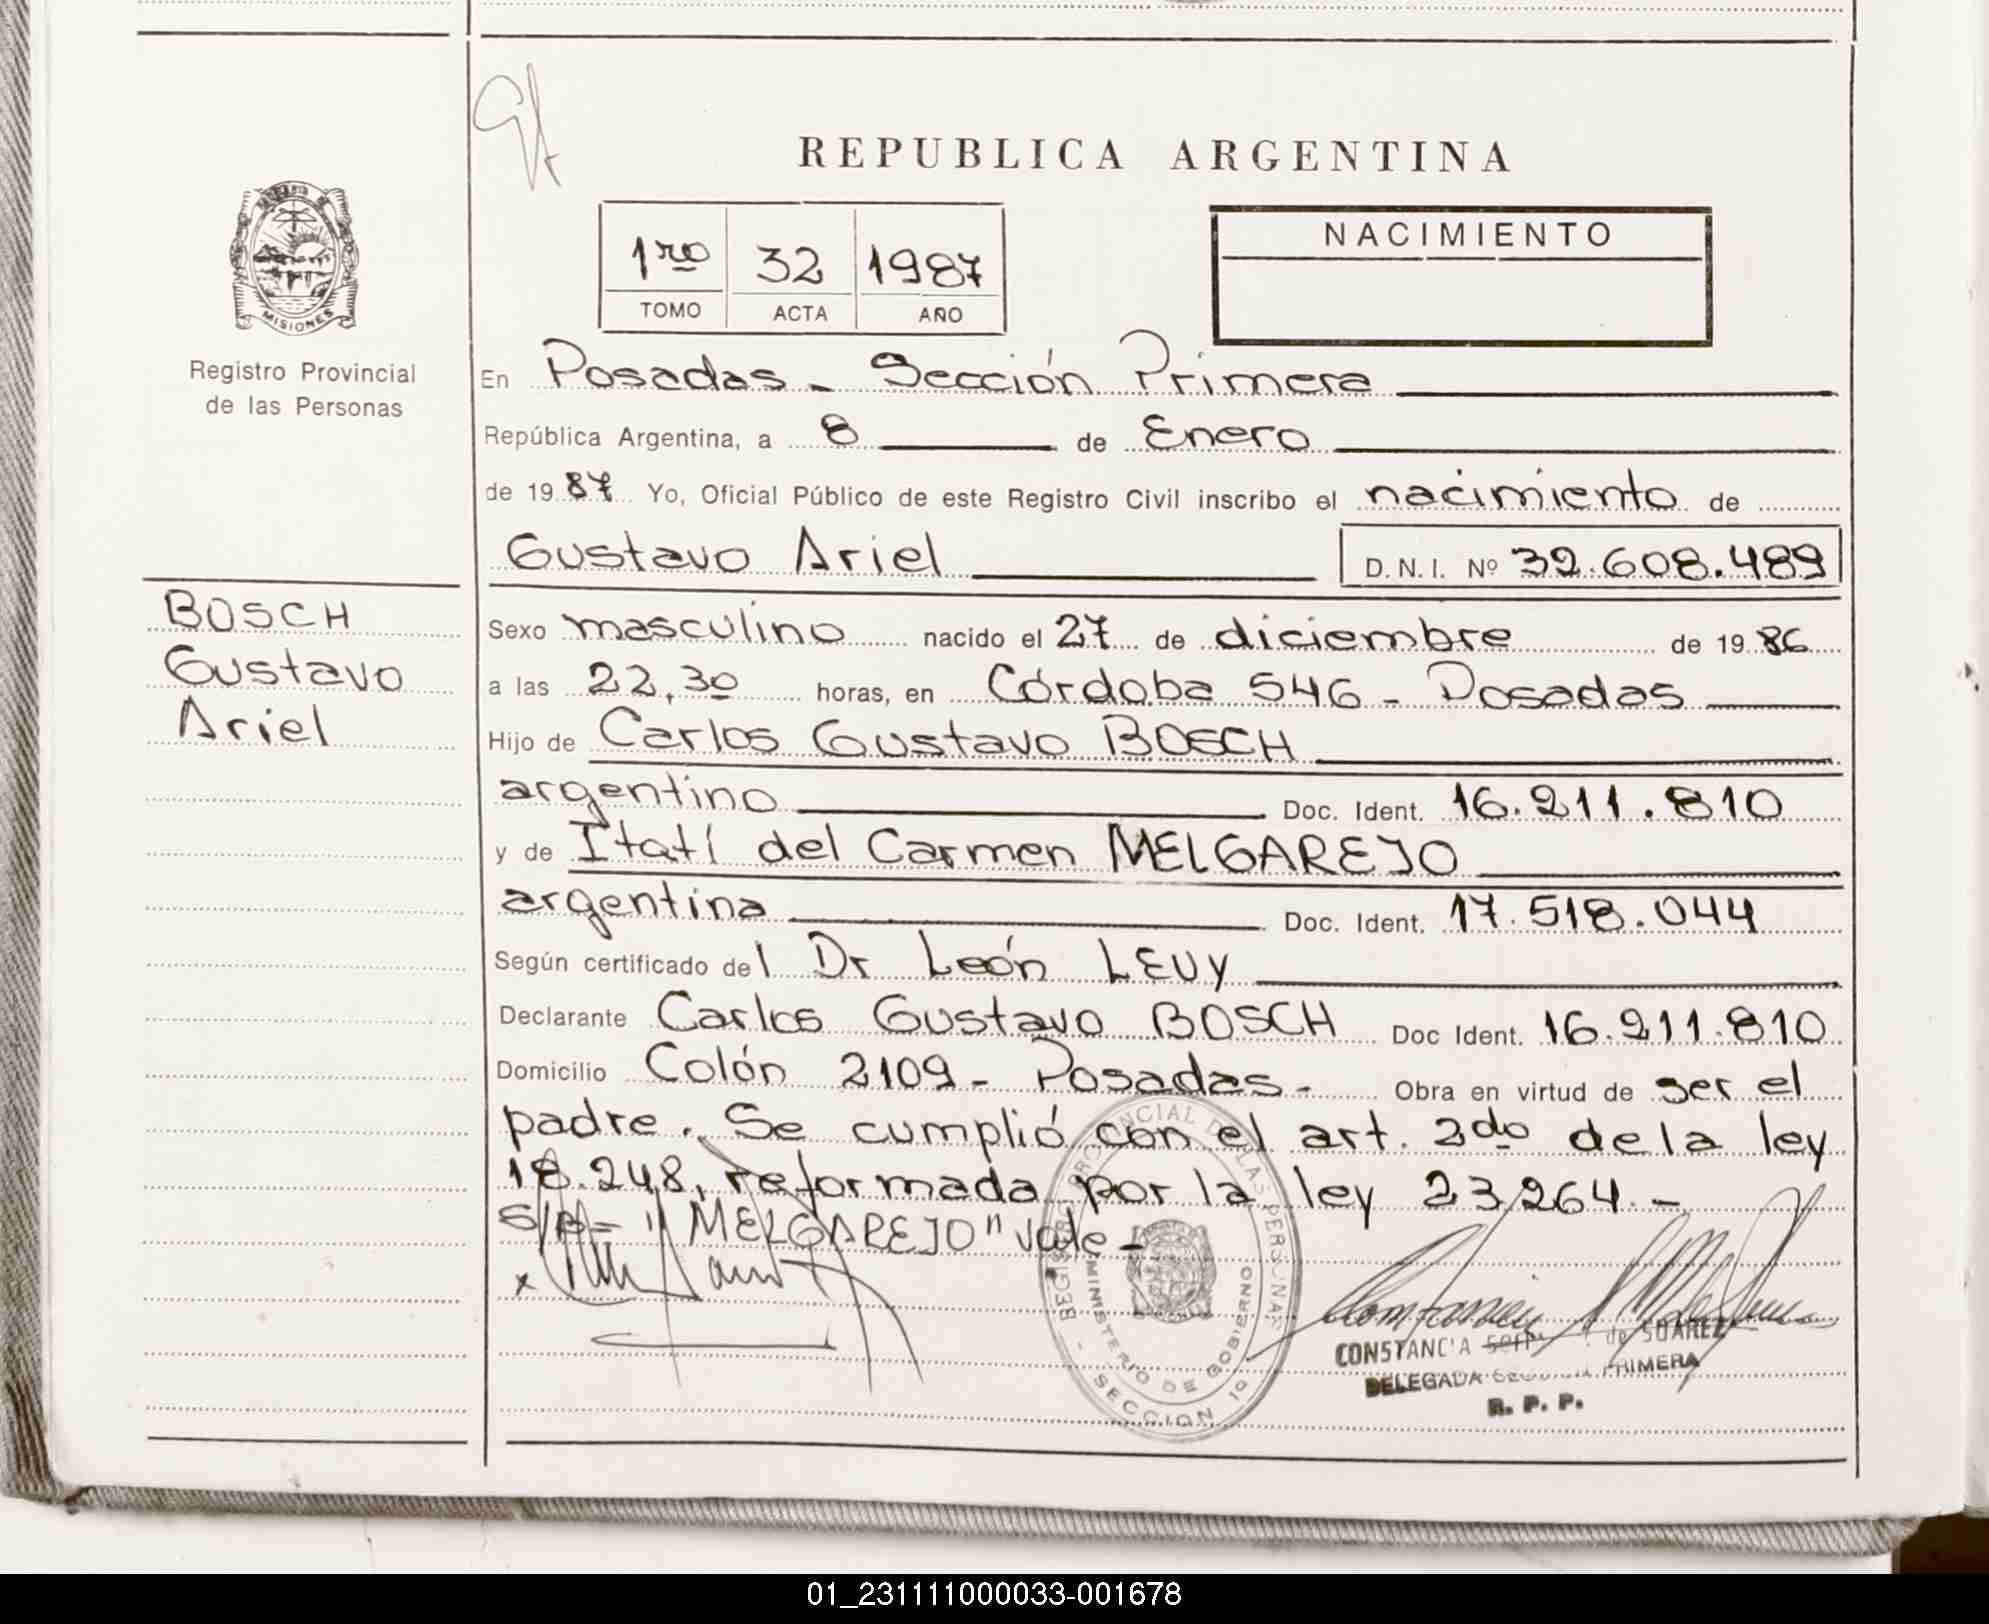 REPUBLICA ARGENTINA
1ro 32 1987
TOMO ACTA AÑO
NACIMIENTO
MISIONES
Registro Provincial
de las Personas
En Posadas - Sección Primera
República Argentina, a 8 de Enero
de 1987 Yo, Oficial Público de este Registro Civil inscribo el nacimiento de
Gustavo Ariel D.N.I. Nº 32.608.489
BOSCH
Gustavo
Ariel
Sexo masculino nacido el 27 de diciembre de 1986
a las 22,30 horas, en Córdoba 546 - Posadas
Hijo de Carlos Gustavo BOSCH
argentino Doc. Ident. 16.211.810
y de Itatí del Carmen MELGAREJO
argentina Doc. Ident. 17.518.044
Según certificado del Dr León LEVY
Declarante Carlos Gustavo BOSCH Doc Ident. 16.211.810
Domicilio Colón 2109 - Posadas - Obra en virtud de ser el
padre. Se cumplió con el art. 2do de la ley
18.248, reformada por la ley 23.264. -
S/R = "MELGAREJO" vale -
REGISTRO PROVINCIAL DE LAS PERSONAS
MINISTERIO DE GOBIERNO
- SECCION 1º
CONSTANCIA de SUAREZ
DELEGADA SECCION PRIMERA
R. P. P.
01_231111000033-001678